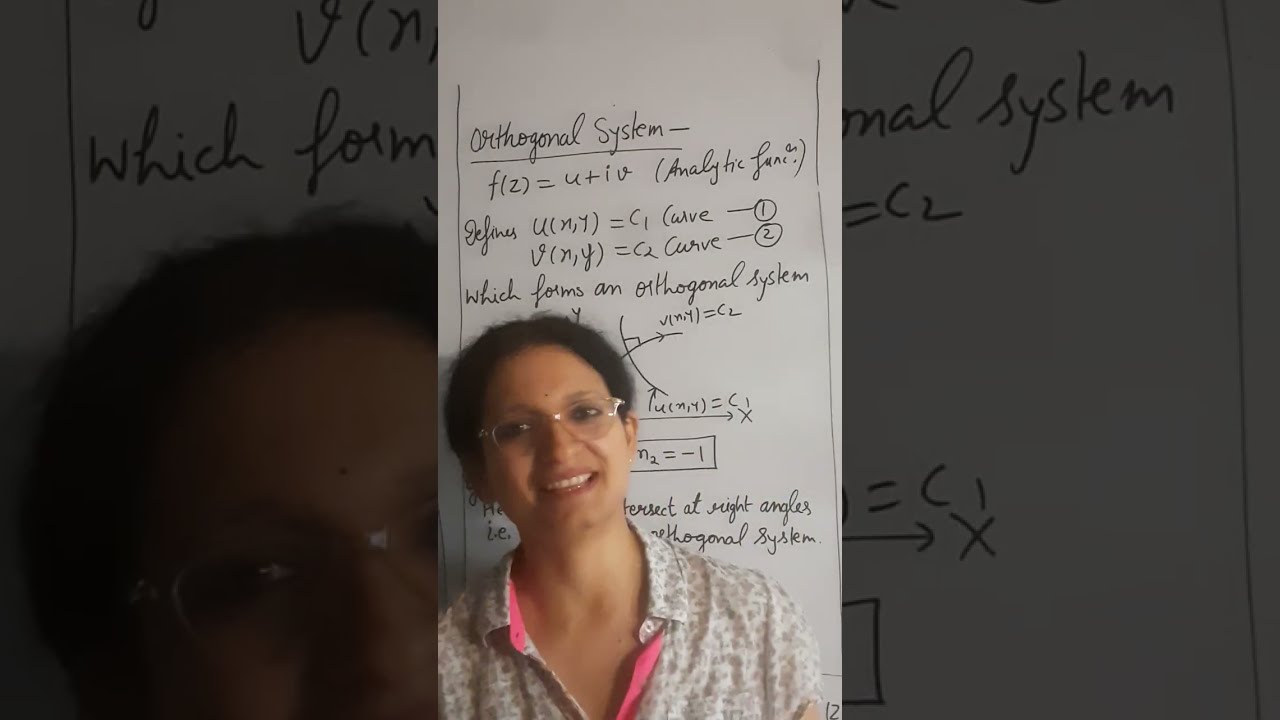 Orthogonal System —
f(z) = u + iv (Analytic funcⁿ.)
Defines u(x,y) = C₁ Curve — ①
v(x,y) = C₂ Curve — ②
Which forms an orthogonal system
Y
v(x,y) = C₂
u(x,y) = C₁
X
m₂ = -1
He
tersect at right angles
i.e.
orthogonal system.
12